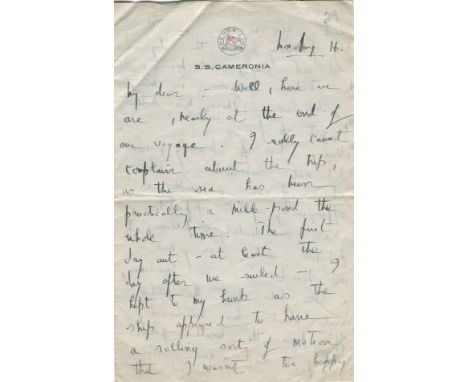 29
16.
S.S. CAMERONIA
My dear :- Well, here we
are, nearly at the end of
our voyage. I really cannot
complain about the trip,
as the sea has been
practically a mill-pond the
whole time. The first
day out - at least the
day after we sailed - I
kept to my bunk as the
ship appeared to have
a rolling sort of motion
that I wasn't too happy